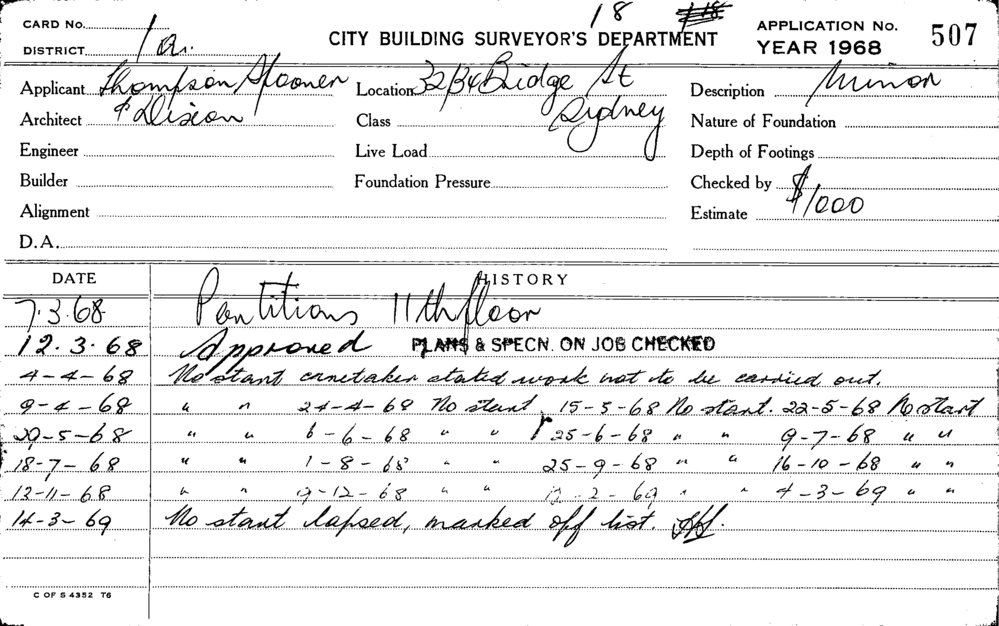 18
CARD No. APPLICATION No. 507
DISTRICT 1a. CITY BUILDING SURVEYOR'S DEPARTMENT YEAR 1968
Applicant Thompson, Spooner Location 32/34 Bridge St Description Minor
Architect & Dixon Class Sydney Nature of Foundation
Engineer Live Load Depth of Footings
Builder Foundation Pressure Checked by
Alignment Estimate $1000
D.A.
DATE HISTORY
7.3.68 Partitions 11th floor
12.3.68 Approved PLANS & SPECN. ON JOB CHECKED
4-4-68 No start caretaker stated work not to be carried out.
9-4-68 " " 24-4-68 No start 15-5-68 No start. 22-5-68 No start
29-5-68 " " 6-6-68 " " 25-6-68 " " 9-7-68 " "
18-7-68 " " 1-8-68 " " 25-9-68 " " 16-10-68 " "
12-11-68 " " 12-68 " " 2-69 " " 4-3-69 " "
14-3-69 No start lapsed, marked off list.
C OF S 4352 T6